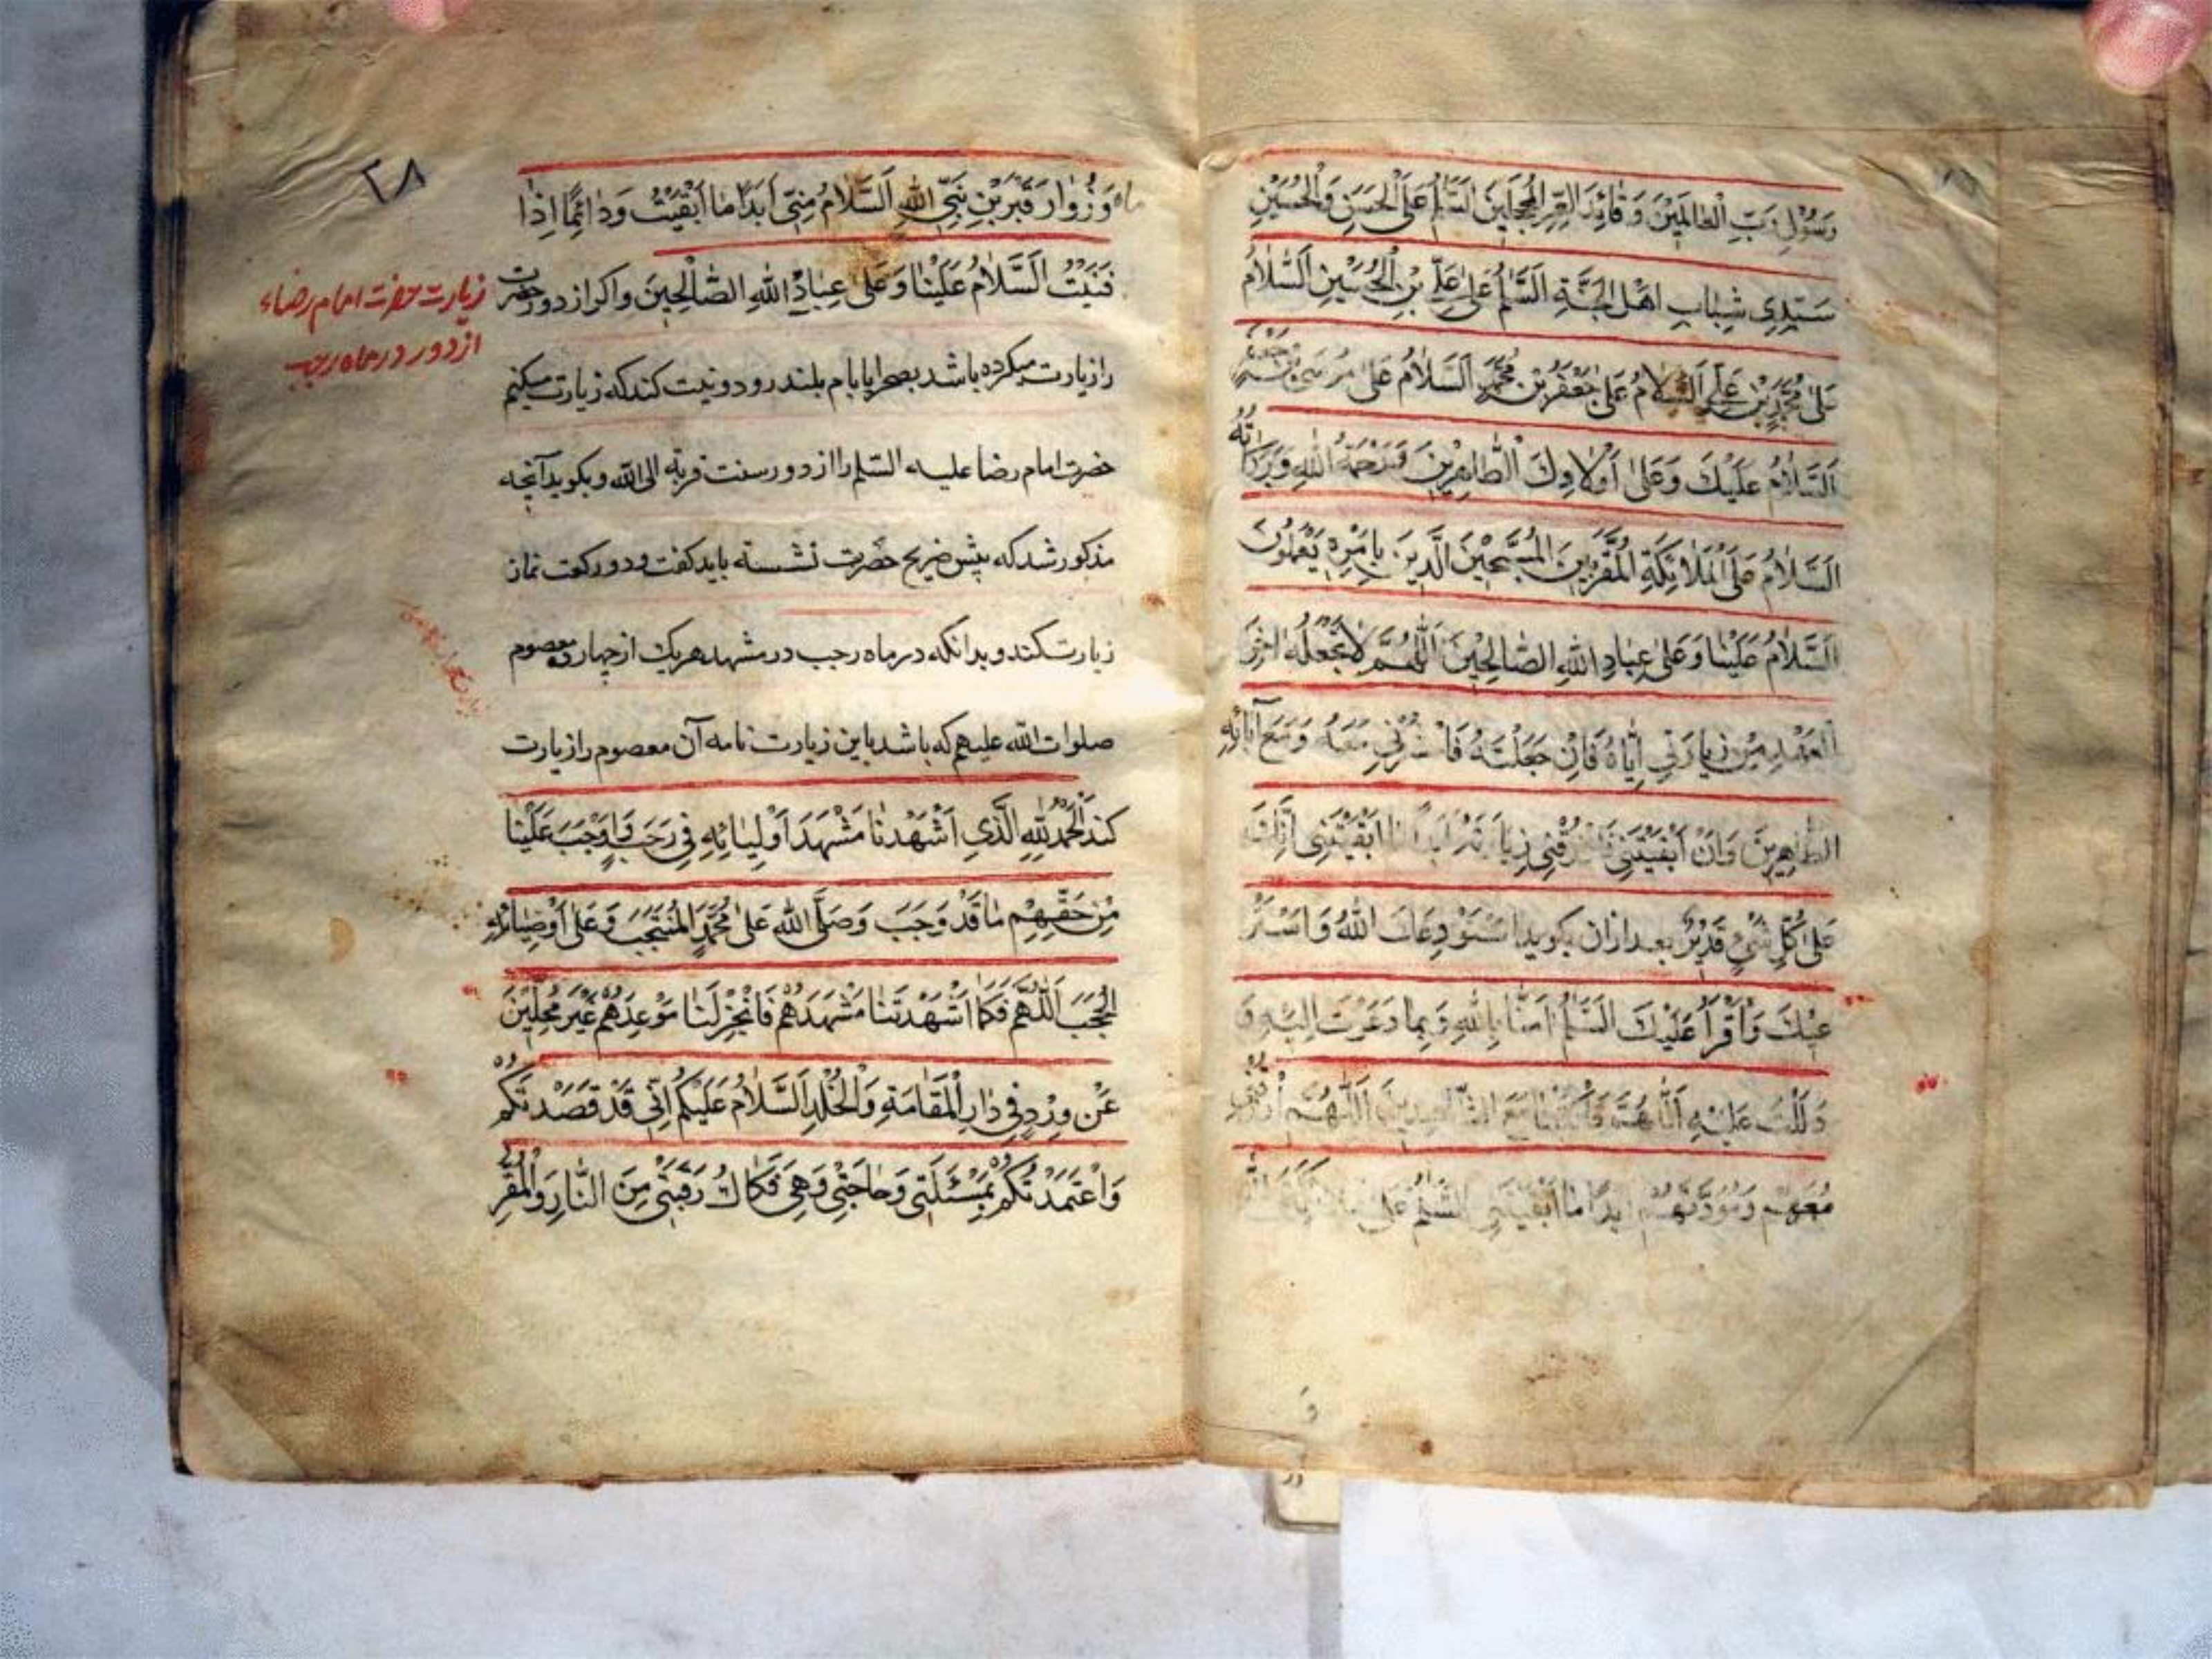 رَسُوْلِ رَبِّ الْعٰالَمِيْنَ وَقٰائِدِ الغُرِّ الْمُحَجَّلِيْنَ اَلسَّلٰمُ عَلَى الْحَسَنِ وَالْحُسَيْنِ
سَيِّدَيْ شَبٰابِ اَهْلِ الْجَنَّةِ اَلسَّلٰمُ عَلٰى عَلِيِّ بْنِ الْحُسَيْنِ اَلسَّلٰامُ
عَلٰى مُحَمَّدِ بْنِ عَلِيٍّ اَلسَّلٰامُ عَلٰى جَعْفَرِ بْنِ مُحَمَّدٍ اَلسَّلٰامُ عَلٰى مُوسَى بْنِ جَعْفَرٍ
اَلسَّلٰامُ عَلَيْكَ وَعَلٰى اَوْلٰادِكَ الطّٰاهِرِيْنَ وَرَحْمَةُ اللّٰهِ وَبَرَكٰاتُهُ
اَلسَّلٰامُ عَلَى الْمَلٰائِكَةِ الْمُقَرَّبِيْنَ الْمُسَبِّحِيْنَ الَّذِيْنَ بِاَمْرِهِ يَعْمَلُوْنَ
اَلسَّلٰامُ عَلَيْنٰا وَعَلٰى عِبٰادِ اللّٰهِ الصّٰالِحِيْنَ اَللّٰهُمَّ لٰا تَجْعَلْهُ اٰخِرَ
الْعَهْدِ مِنْ زِيٰارَتِي اِيّٰاهُ فَاِنْ جَعَلْتَهُ فَاحْشُرْنِي مَعَهُ وَمَعَ آبٰائِهِ
الطّٰاهِرِيْنَ وَاِنْ اَبْقَيْتَنِي فَارْزُقْنِي زِيٰارَتَهُ اَبَدًا مٰا اَبْقَيْتَنِي اِنَّكَ
عَلٰى كُلِّ شَيْءٍ قَدِيْرٌ بعد ازان بكويد اَسْتَوْدِعُكَ اللّٰهَ وَاَسْتَرْ
عِيْكَ وَاَقْرَأُ عَلَيْكَ السَّلٰمُ اٰمَنّٰا بِاللّٰهِ وَبِمٰا دَعَوْتَ اِلَيْهِ وَ
دَلَلْتَ عَلَيْهِ اَللّٰهُمَّ فَاكْتُبْنٰا مَعَ الشّٰاهِدِيْنَ اَللّٰهُمَّ ارْزُقْنِي
وَمَوَدَّتَهُمْ اَبَدًا مٰا اَبْقَيْتَنِي اَلسَّلٰمُ عَلٰى
٢٨
وَزُوّٰارَ قَبْرِ بْنِ نَبِيِّ اللّٰهِ اَلسَّلٰامُ مِنِّي اَبَدًا مٰا اَبْقَيْتُ وَدٰائِمًا اِذٰا
فَنَيْتُ اَلسَّلٰامُ عَلَيْنٰا وَعَلٰى عِبٰادِ اللّٰهِ الصّٰالِحِيْنَ واكر از دور حضرت
زيارت حضرت امام رضاء
از دور در ماه رجب
را زيارت ميكرده باشد بصحرا يا بام بلند رود ونيت كند كه زيارت ميكنم
حضرت امام رضا عليه السّلم را از دور سنت قربة الى الله وبكويد آنچه
مذكور شد كه پيش ضريح حضرت نشسته بايد كفت ودو ركعت نماز
زيارت كند وبدانكه در ماه رجب در مشهد هر يك از چهارده معصوم
صلوات الله عليهم كه باشد باين زيارت نامه آن معصوم را زيارت
كند اَلْحَمْدُ لِلّٰهِ الَّذِي اَشْهَدَنٰا مَشْهَدَ اَوْلِيٰائِهِ فِي رَجَبٍ وَاَوْجَبَ عَلَيْنٰا
مِنْ حَقِّهِمْ مٰا قَدْ وَجَبَ وَصَلَّى اللّٰهُ عَلٰى مُحَمَّدٍ الْمُنْتَجَبِ وَعَلٰى اَوْصِيٰائِهِ
الْحُجُبِ اَللّٰهُمَّ فَكَمٰا اَشْهَدْتَنٰا مَشْهَدَهُمْ فَانْجِزْ لَنٰا مَوْعِدَهُمْ غَيْرَ مُحَلَّئِيْنَ
عَنْ وِرْدٍ فِي دٰارِ الْمُقٰامَةِ وَالْخُلْدِ اَلسَّلٰامُ عَلَيْكُمْ اِنِّي قَدْ قَصَدْتُكُمْ
وَاعْتَمَدْتُكُمْ بِمَسْئَلَتِي وَحٰاجَتِي وَهِيَ فَكٰاكُ رَقَبَتِي مِنَ النّٰارِ وَالْمَقَرُّ